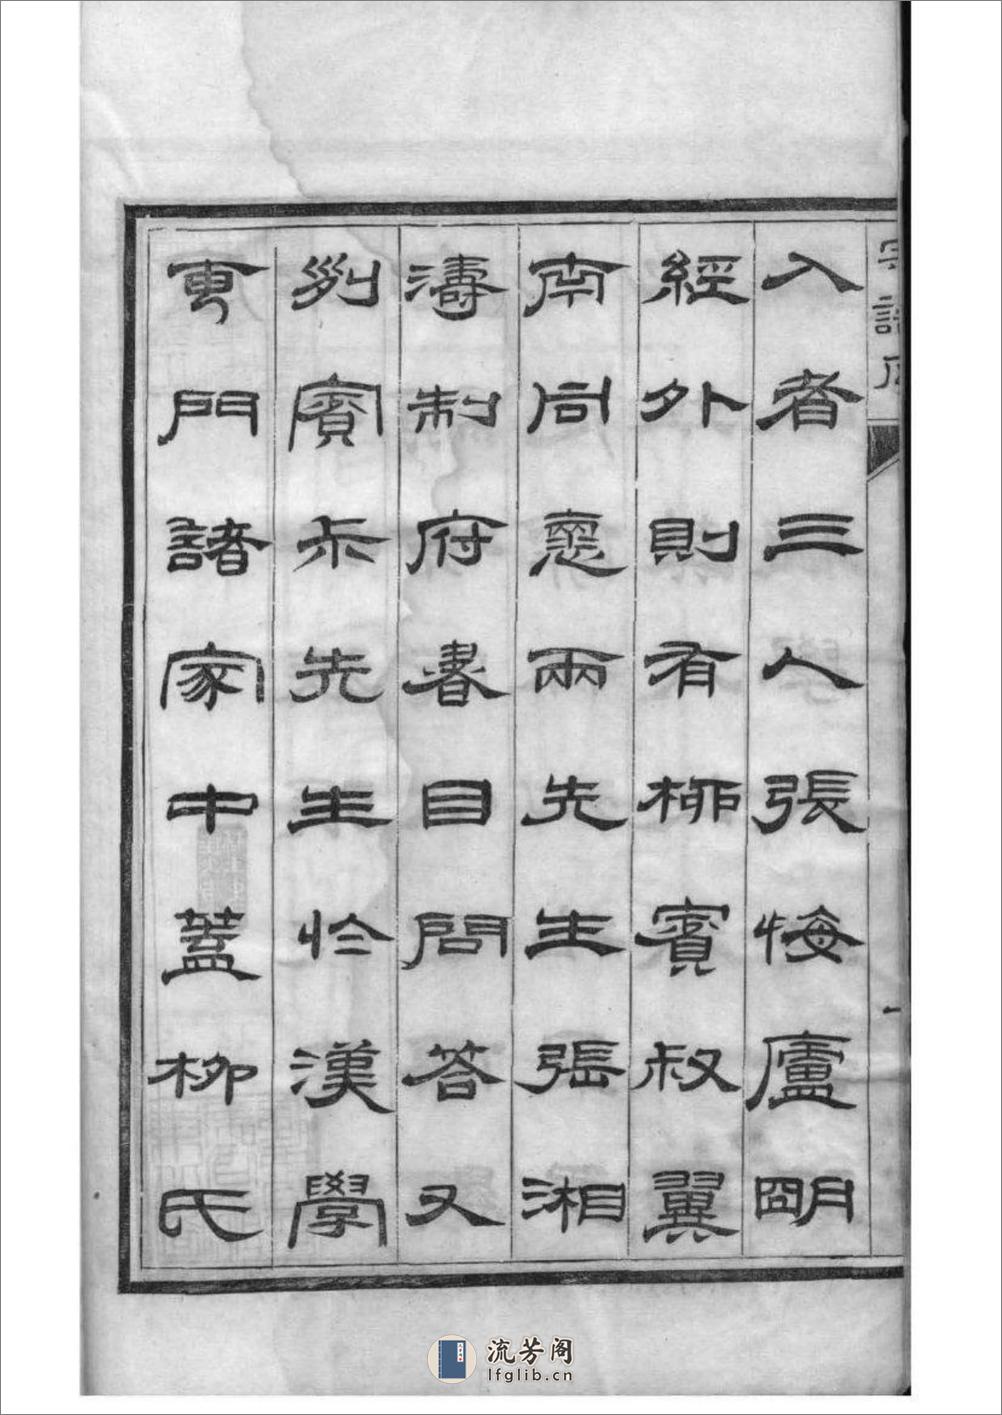 入者三人張悔廬朙
經外則有柳賓叔翼
南同懷兩先生張湘
濤制府書目問答又
列賓叔先生於漢學
專門諸家中蓋柳氏
一
流芳阁
lfglib.cn